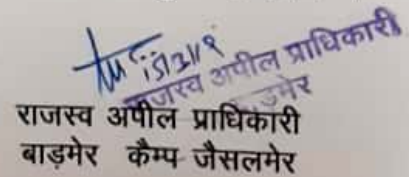 राजस्व अपील प्राधिकारी
बाड़मेर
राजस्व अपील प्राधिकारी
बाड़मेर कैम्प जैसलमेर